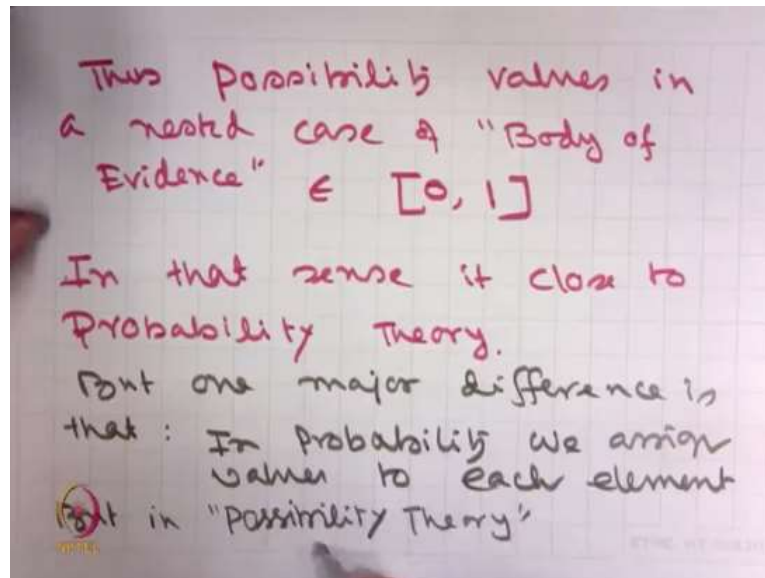 Thus possibility values in
a nested case of "Body of
Evidence" ∈ [0, 1]
In that sense it close to
Probability Theory.
But one major difference is
that : In probability we assign
values to each element
But in "Possibility Theory"
NPTEL